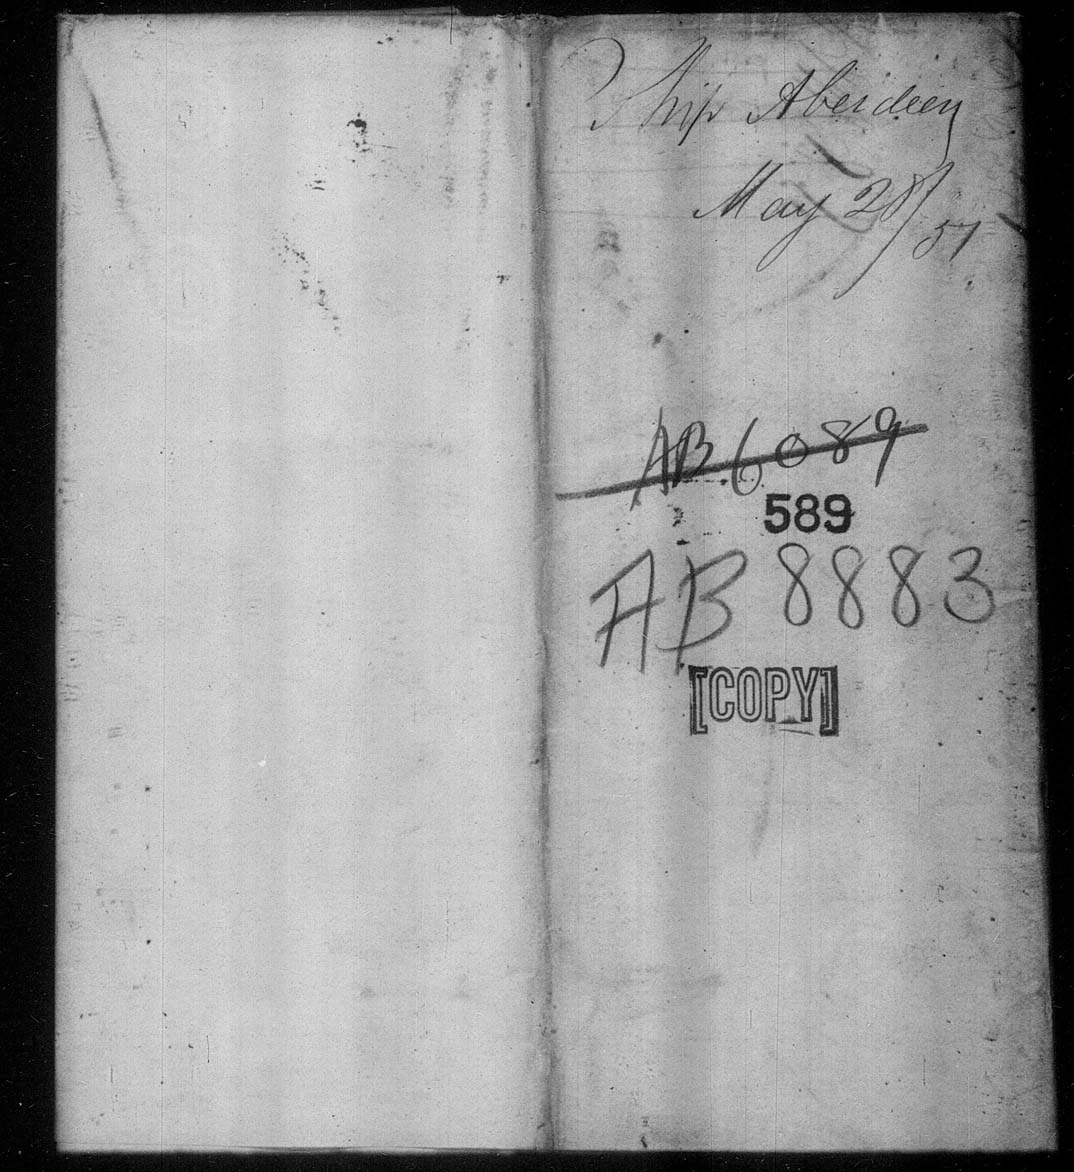 Ship Aberdeen
May 28/57
AB 6089
589
AB 8883
[COPY]